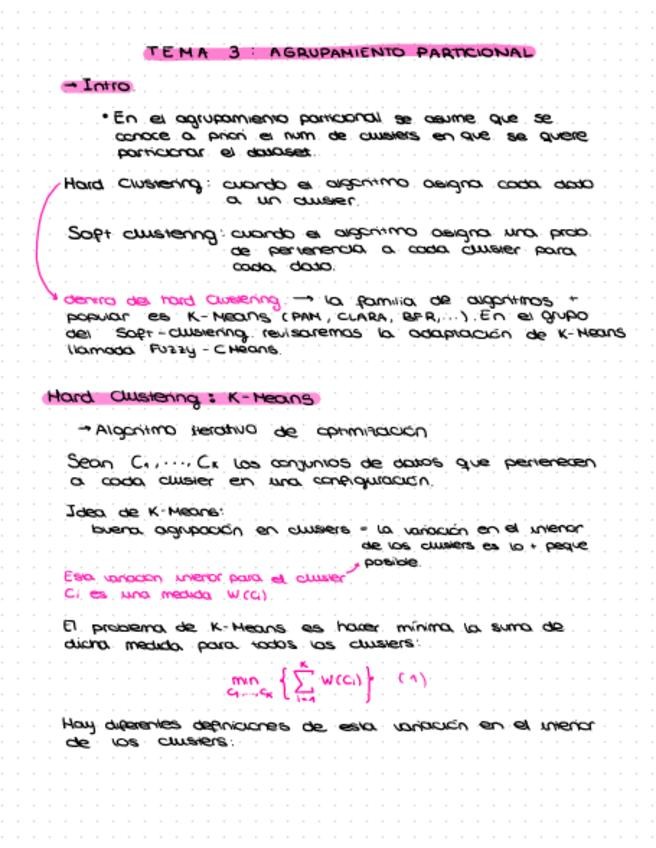 TEMA 3 : AGRUPAMIENTO PARTICIONAL
→ Intro
• En el agrupamiento particional se asume que se
conoce a priori el num de clusters en que se quiere
particionar el dataset.
Hard Clustering: cuando el algoritmo asigna cada dato
a un cluster.
Soft clustering: cuando el algoritmo asigna una prob.
de pertenencia a cada cluster para
cada dato.
dentro del hard clustering. → la familia de algoritmos +
popular es K-Means (PAM, CLARA, BFR,...). En el grupo
del Soft-clustering revisaremos la adaptación de K-Means
llamada Fuzzy-CMeans.
Hard Clustering : K-Means
→ Algoritmo iterativo de optimización
Sean C₁,..., Cₖ los conjuntos de datos que pertenecen
a cada cluster en una configuración.
Idea de K-Means:
buena agrupación en clusters = la variación en el interior
de los clusters es lo + peque
posible.
Esta variación interior para el cluster
Cᵢ es una medida W(Cᵢ)
El problema de K-Means es hacer mínima la suma de
dicha medida para todos los clusters:
min C₁,...,Cₖ { ∑ᵢ₌₁ᴷ W(Cᵢ) } (1)
Hay diferentes definiciones de esta variación en el interior
de los clusters: